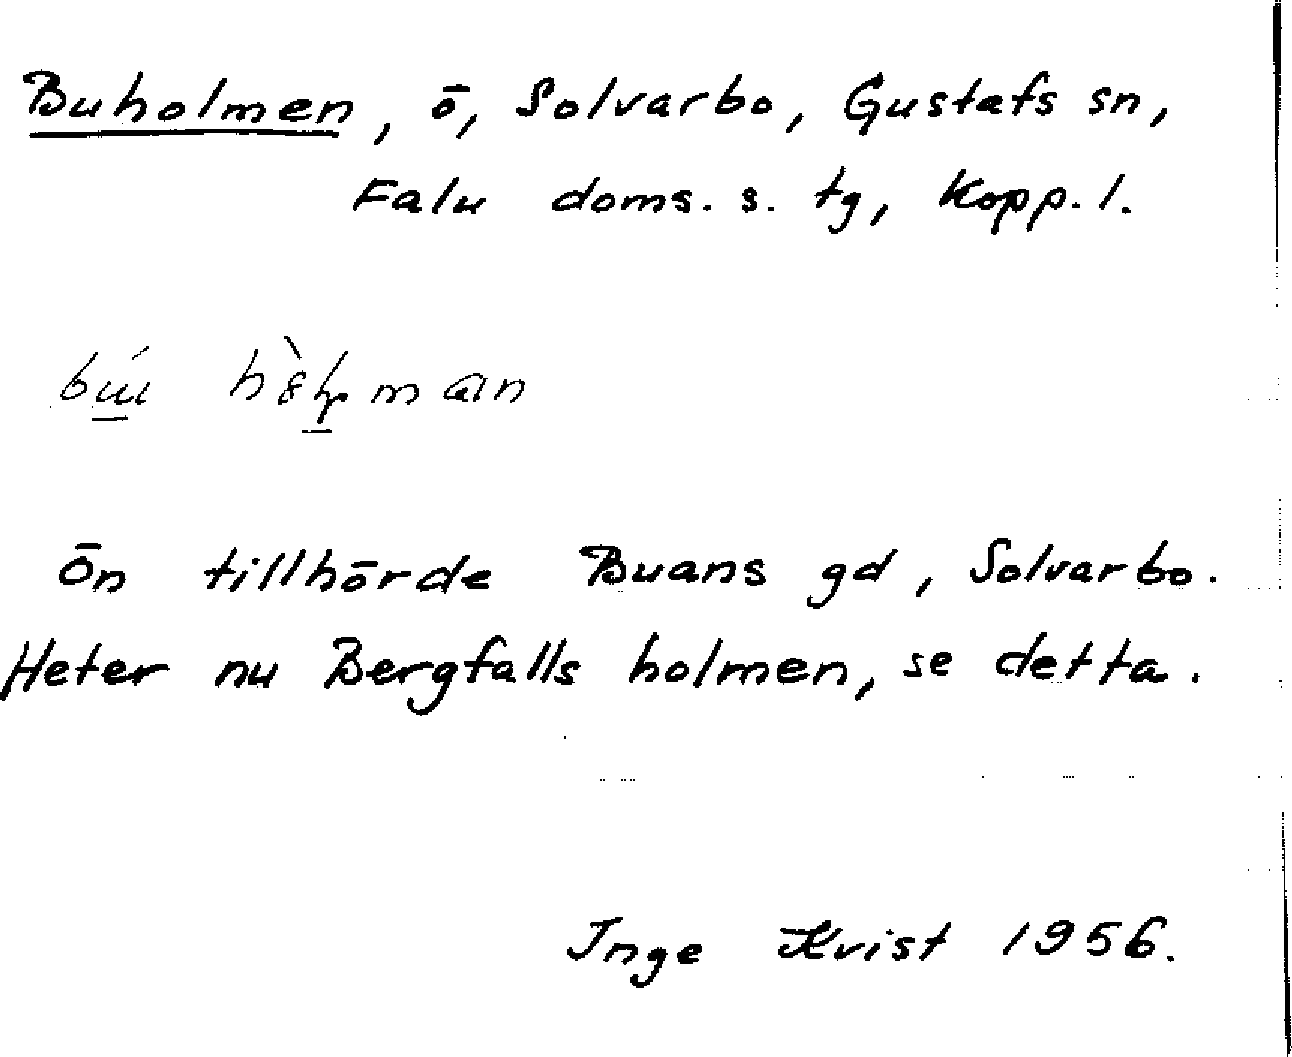 Buholmen, ö, Solvarbo, Gustafs sn,
Falu doms. s. tg, Kopp. l.
Ön tillhörde Buans gd, Solvarbo.
Heter nu Bergfalls holmen, se detta.
Inge Kvist 1956.